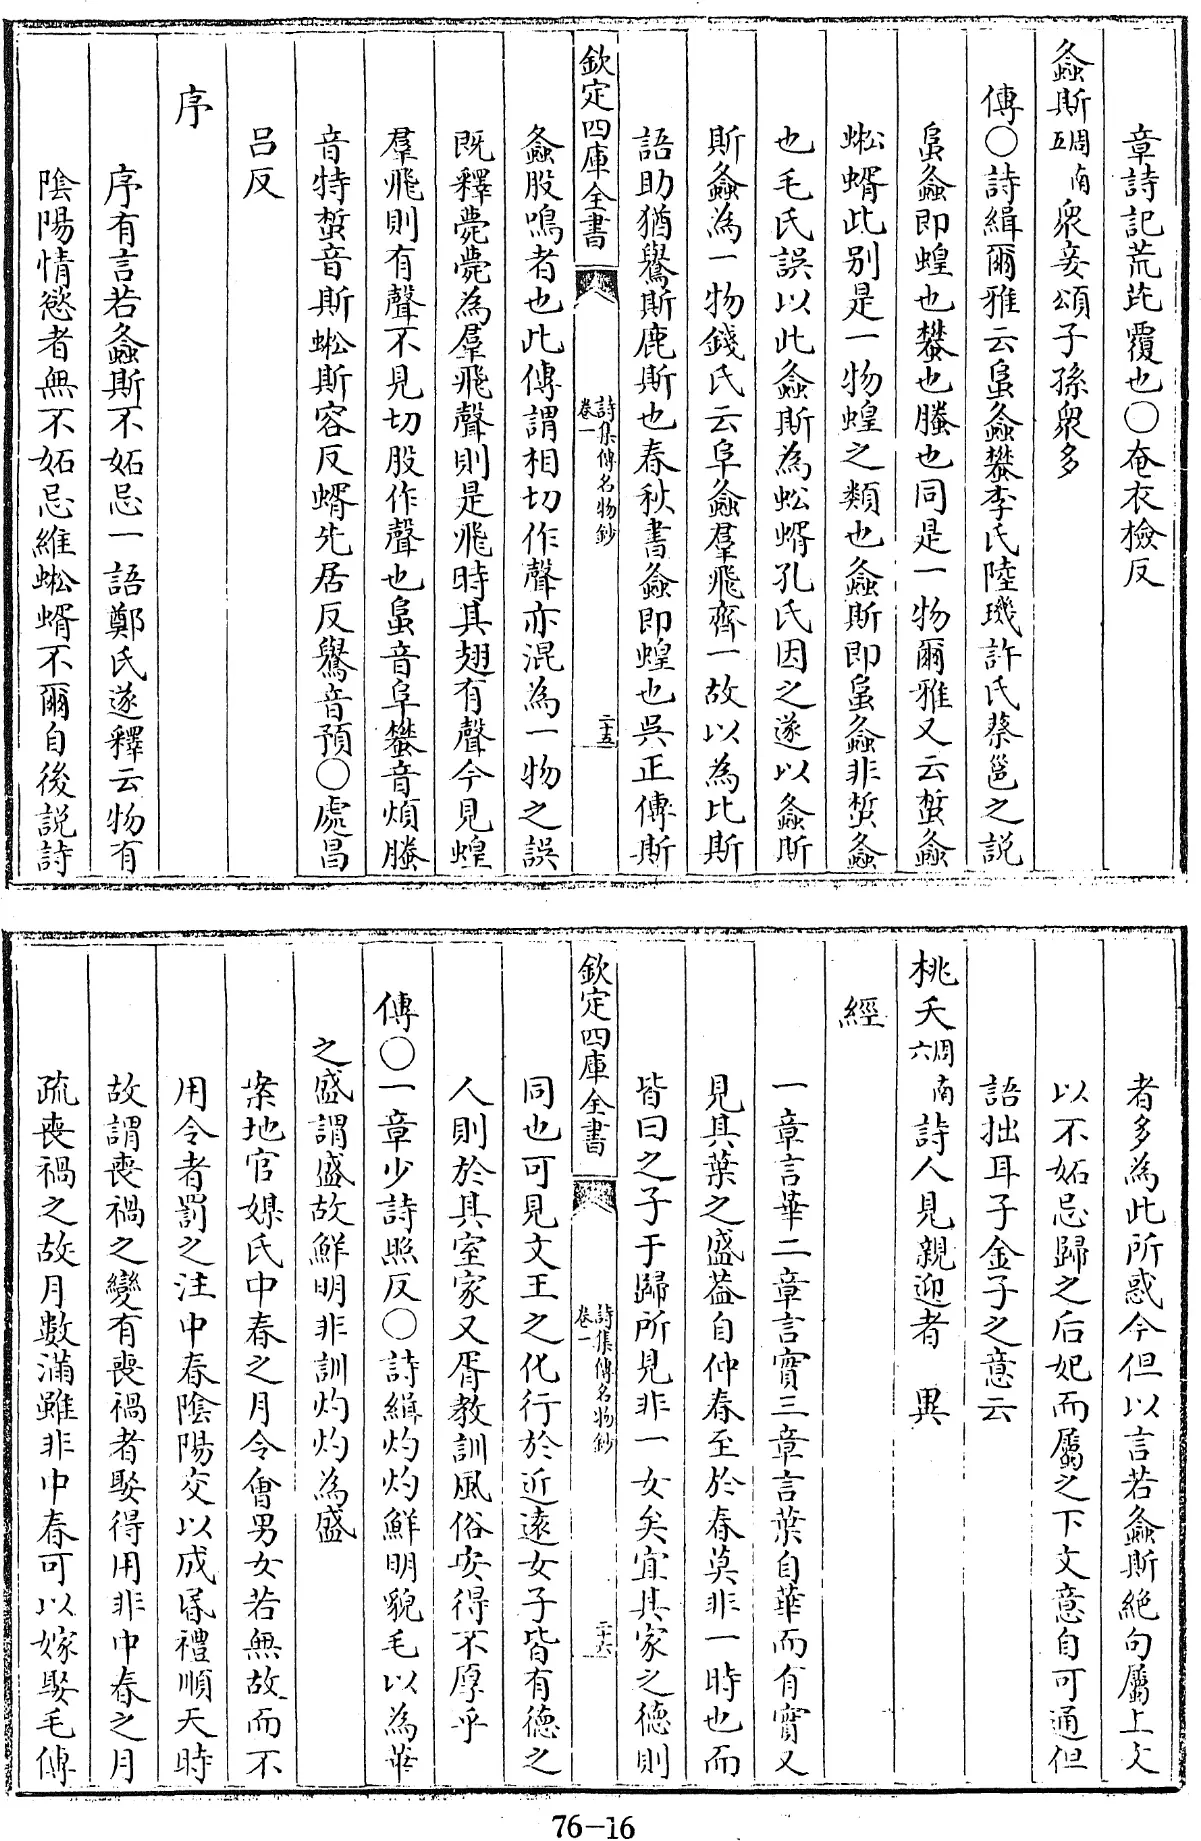 章詩記荒芘覆也○奄衣檢反
螽斯周南五衆妾頌子孫衆多
傳○詩緝爾雅云𧒂螽蠜李氏陸璣許氏蔡邕之説
𧒂螽即蝗也蠜也螣也同是一物爾雅又云蜤螽
蜙蝑此别是一物蝗之類也螽斯即𧒂螽非蜤螽
也毛氏誤以此螽斯為蚣蝑孔氏因之遂以螽斯
斯螽為一物錢氏云阜螽羣飛齊一故以為比斯
語助猶鸒斯鹿斯也春秋書螽即蝗也吳正傳斯
欽定四庫全書
詩集傳名物鈔
卷一
二十五
螽股鳴者也此傳謂相切作聲亦混為一物之誤
既釋薨薨為羣飛聲則是飛時其翅有聲今見蝗
羣飛則有聲不見切股作聲也𧒂音阜蠜音煩螣
音特蜤音斯蜙斯容反蝑先居反鸒音預○處昌
吕反
序
序有言若螽斯不妬忌一語鄭氏遂釋云物有
陰陽情慾者無不妬忌維蜙蝑不爾自後説詩
者多為此所惑今但以言若螽斯絶句屬上文
以不妬忌歸之后妃而屬之下文意自可通但
語拙耳子金子之意云
桃夭周南六詩人見親迎者 興
經
一章言華二章言實三章言葉自華而有實又
見其葉之盛葢自仲春至於春莫非一時也而
皆曰之子于歸所見非一女矣宜其家之徳則
欽定四庫全書
詩集傳名物鈔
卷一
二十六
同也可見文王之化行於近遠女子皆有徳之
人則於其室家又胥教訓風俗安得不厚乎
傳○一章少詩照反○詩緝灼灼鮮明貌毛以為華
之盛謂盛故鮮明非訓灼灼為盛
案地官媒氏中春之月令㑹男女若無故而不
用令者罰之注中春陰陽交以成昬禮順天時
故謂喪禍之變有喪禍者娶得用非中春之月
疏喪禍之故月數滿雖非中春可以嫁娶毛傳
76-16